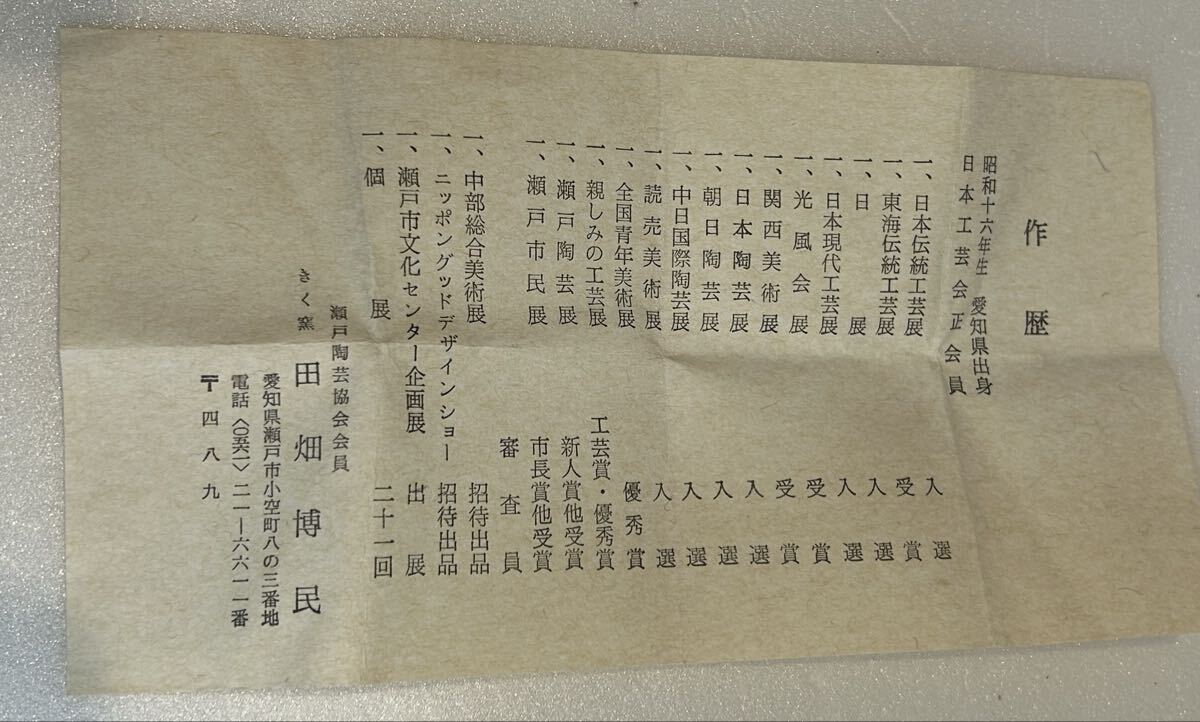 作歴
昭和十六年生 愛知県出身
日本工芸会正会員
一、日本伝統工芸展 入選
一、東海伝統工芸展 受賞
一、日展 入選
一、日本現代工芸展 入選
一、光風会展 受賞
一、関西美術展 受賞
一、日本陶芸展 入選
一、朝日陶芸展 入選
一、中日国際陶芸展 入選
一、読売美術展 入選
一、全国青年美術展 優秀賞
一、親しみの工芸展 工芸賞・優秀賞
一、瀬戸陶芸展 新人賞他受賞
一、瀬戸市民展 市長賞他受賞
審査員
一、中部総合美術展 招待出品
一、ニッポングッドデザインショー 招待出品
一、瀬戸市文化センター企画展 出展
一、個展 二十一回
瀬戸陶芸協会会員
きく窯 田畑博民
愛知県瀬戸市小空町八の三番地
電話〈〇五六一〉二一―六六一一番
〒四八九